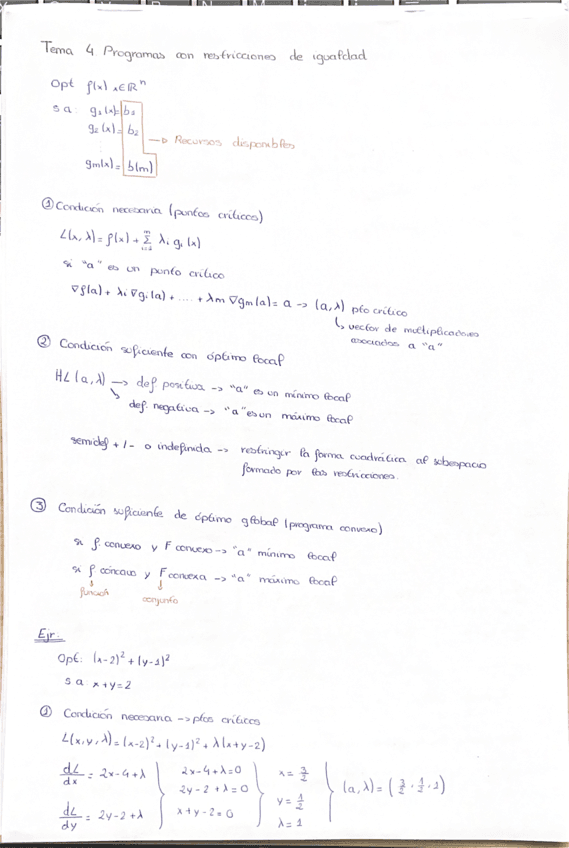 Tema 4 Programas con restricciones de igualdad
Opt f(x) x∈ℝⁿ
s a: g₁(x)= b₁
g₂(x)= b₂
→ Recursos disponibles
gm(x)= b(m)
① Condición necesaria (puntos críticos)
L(x, λ)= f(x) + Σ λi gi (x)
si "a" es un punto crítico
∇f(a) + λi ∇gi(a) + .... + λm ∇gm(a)= a → (a, λ) pto crítico
↳ vector de multiplicadores
asociados a "a"
② Condición suficiente con óptimo local
HL (a, λ) → def positiva → "a" es un mínimo local
↘ def. negativa → "a" es un máximo local
semidef + / - o indefinida → restringer la forma cuadrática al subespacio
formado por las restricciones.
③ Condición suficiente de óptimo global (programa convexo)
si f. convexo y F convexo → "a" mínimo local
si f cóncava y F convexa → "a" máximo local
↓ función ↓ conjunto
Ejr:
Opt: (x-2)² + (y-1)²
s a: x+y=2
① Condición necesaria → ptos críticos
L(x, y, λ)= (x-2)² + (y-1)² + λ(x+y-2)
dL/dx = 2x-4+λ } 2x-4+λ=0 } x= 3/2
2y-2+λ=0 } y= 1/2 } (a, λ)= (3/2, 1/2, 1)
dL/dy = 2y-2+λ } x+y-2=0 } λ= 1